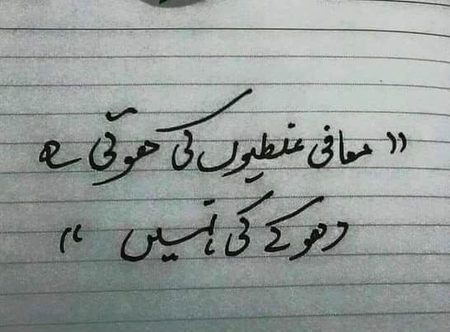 "معافی غلطیوں کی ھوتی ہے
دھوکے کی نہیں"